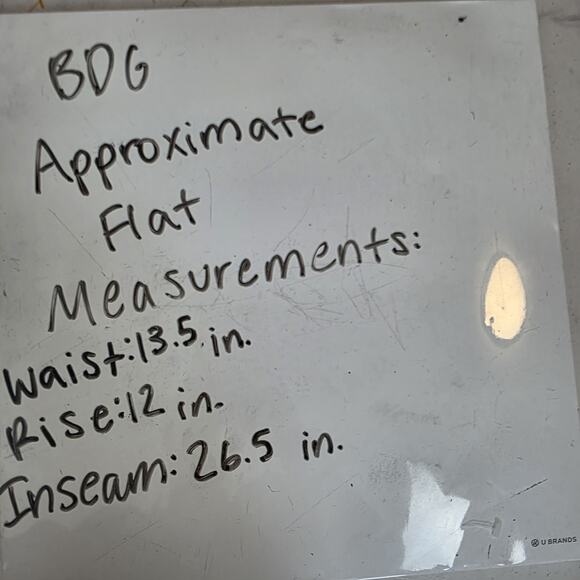 BDG
Approximate
Flat
Measurements:
Waist: 13.5 in.
Rise: 12 in.
Inseam: 26.5 in.
U BRANDS